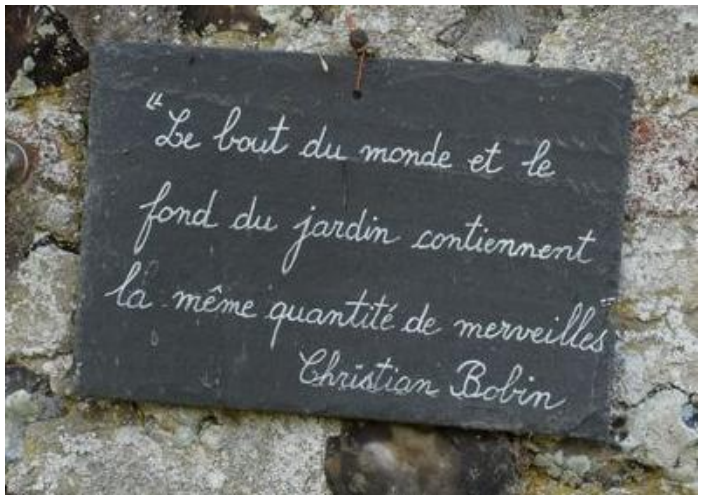 "Le bout du monde et le
fond du jardin contiennent
la même quantité de merveilles"
Christian Bobin